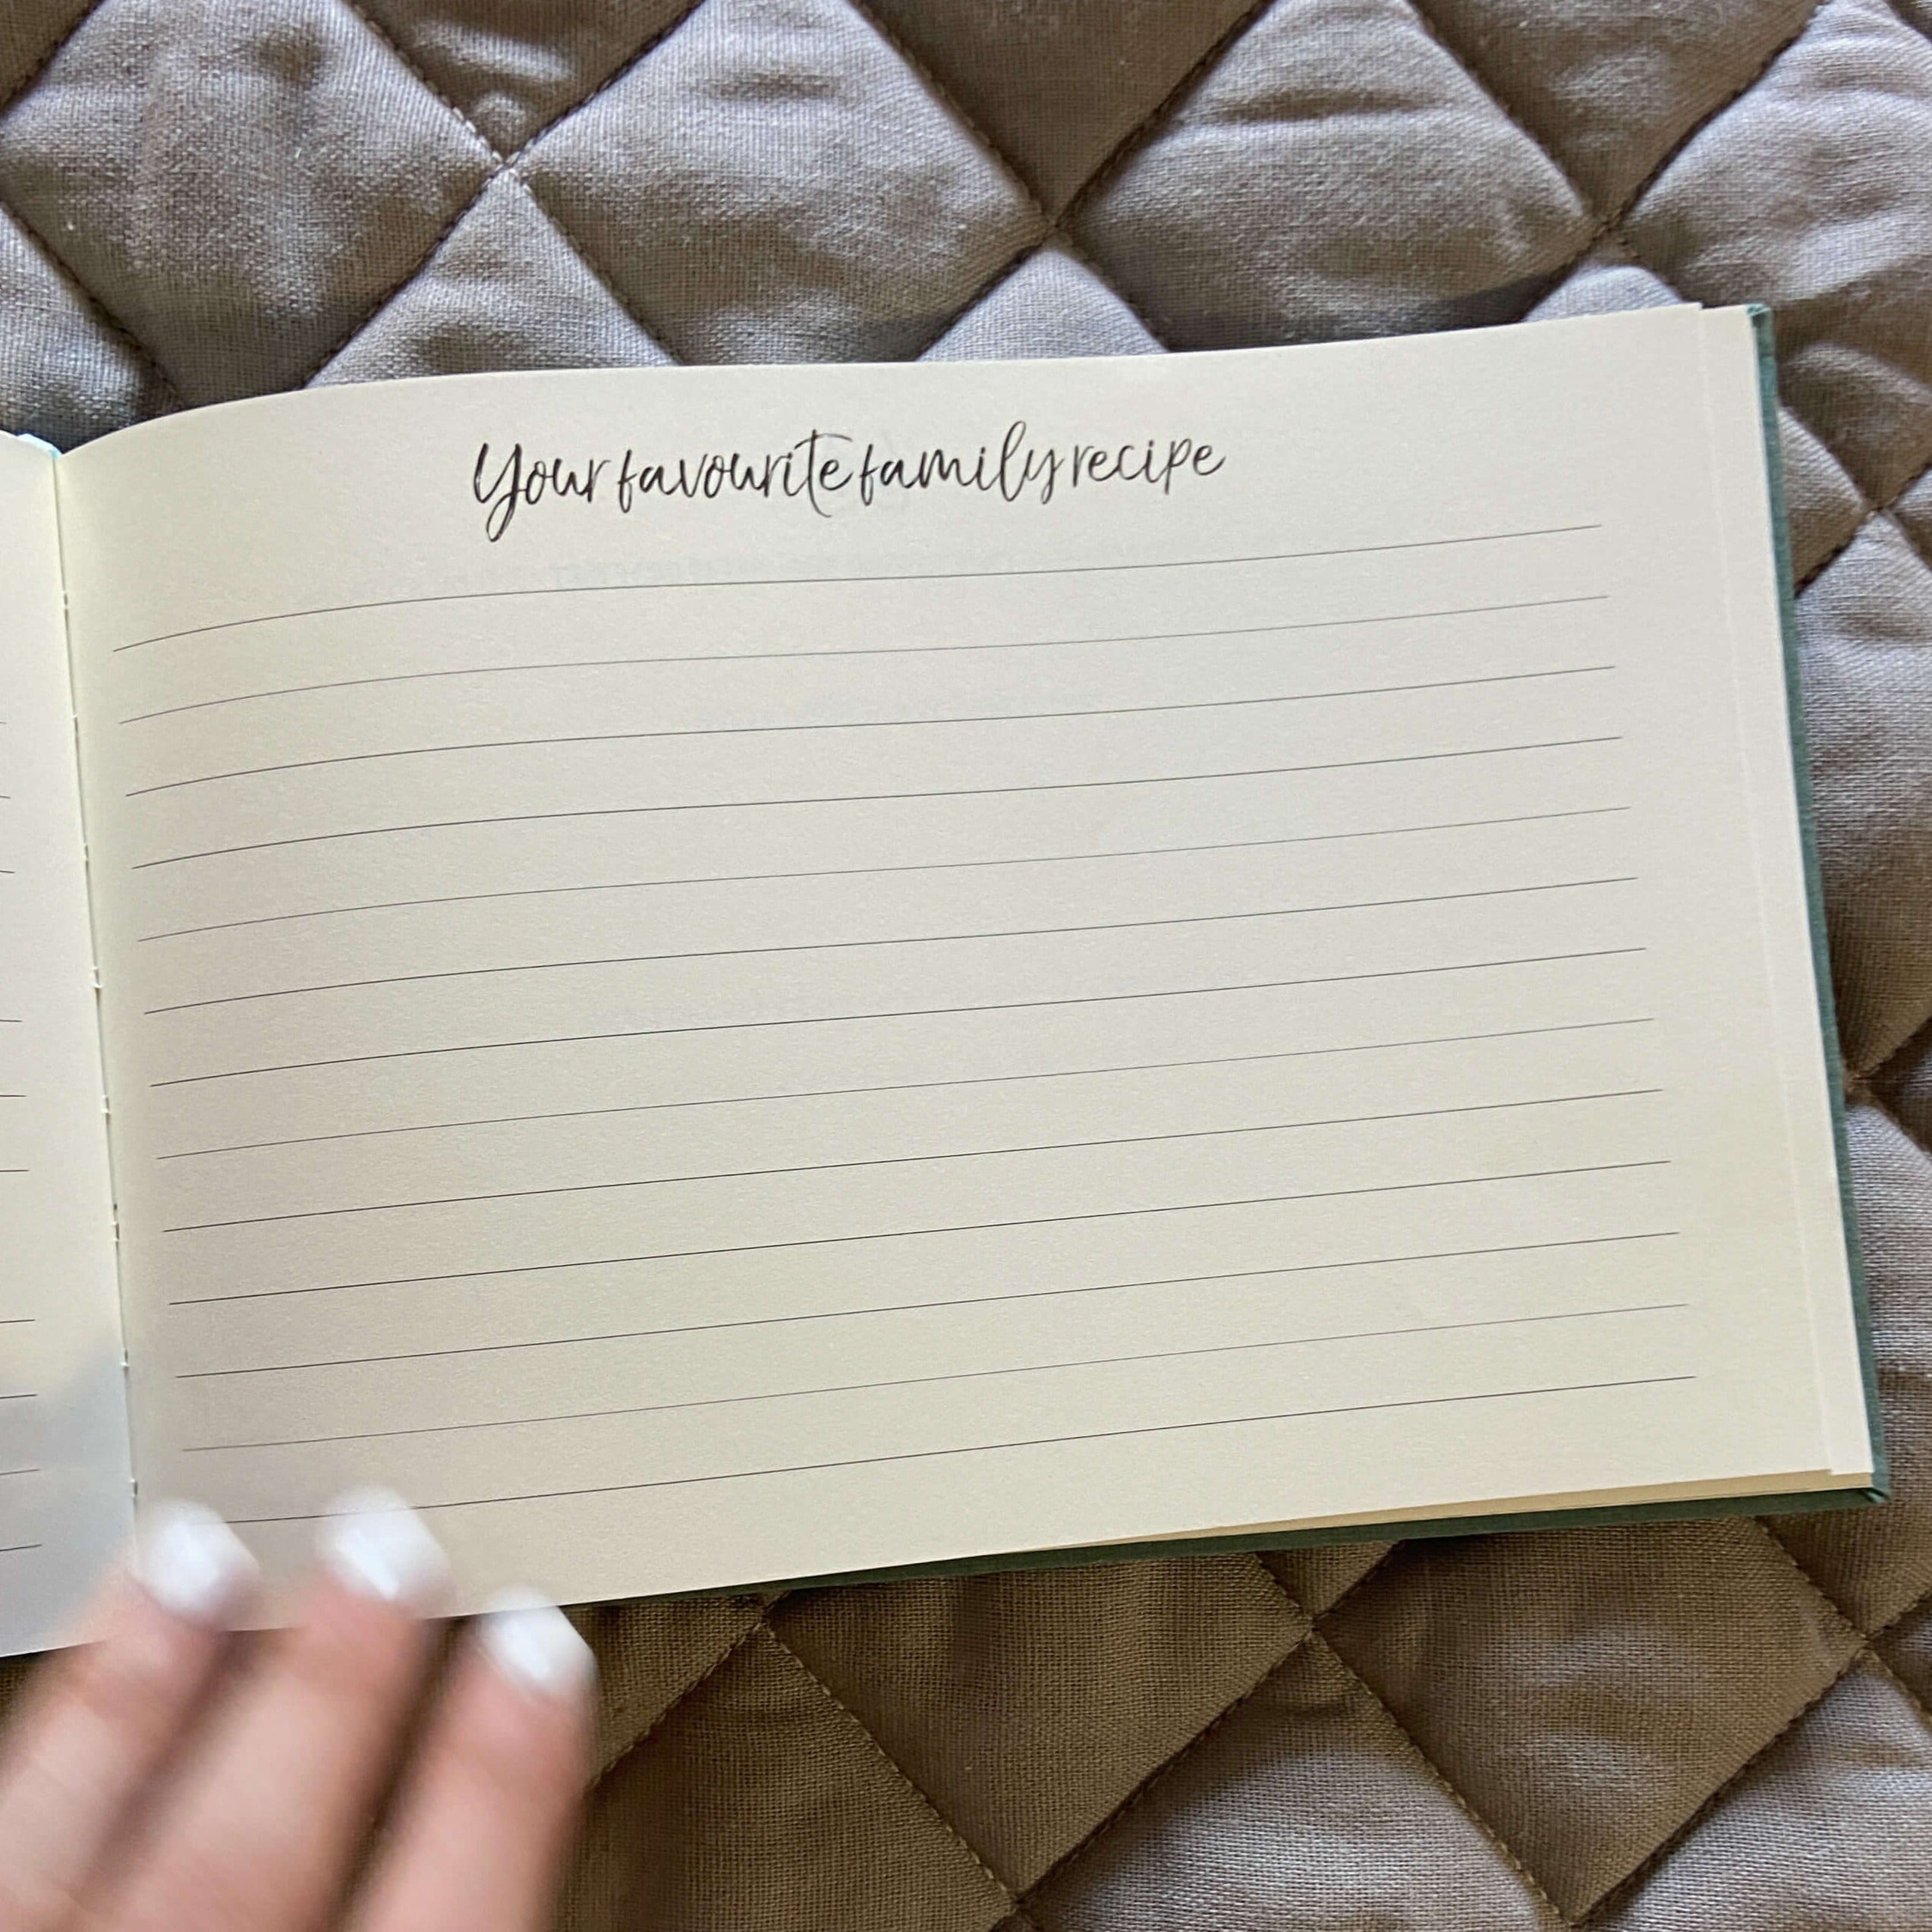 Your favourite family recipe